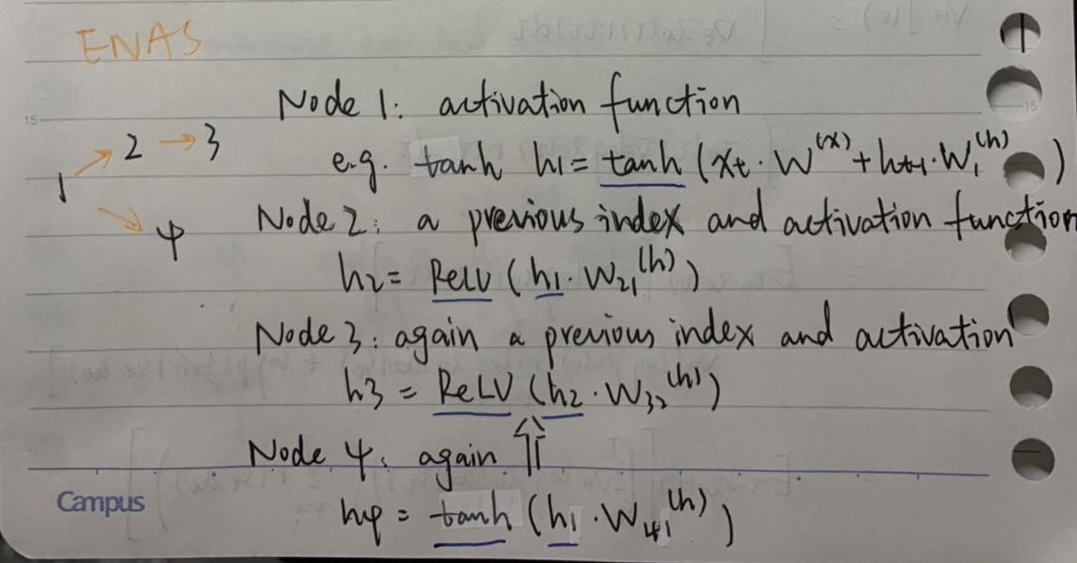 ENAS
Node 1: activation function
1 → 2 → 3
e.g. tanh h1 = tanh (xt · W^(x) + ht-1 · W1^(h))
→ 4
Node 2: a previous index and activation function
h2 = ReLU (h1 · W21^(h))
Node 3: again a previous index and activation
h3 = ReLU (h2 · W32^(h))
Node 4: again ⇑
h4 = tanh (h1 · W41^(h))
Campus
15
15